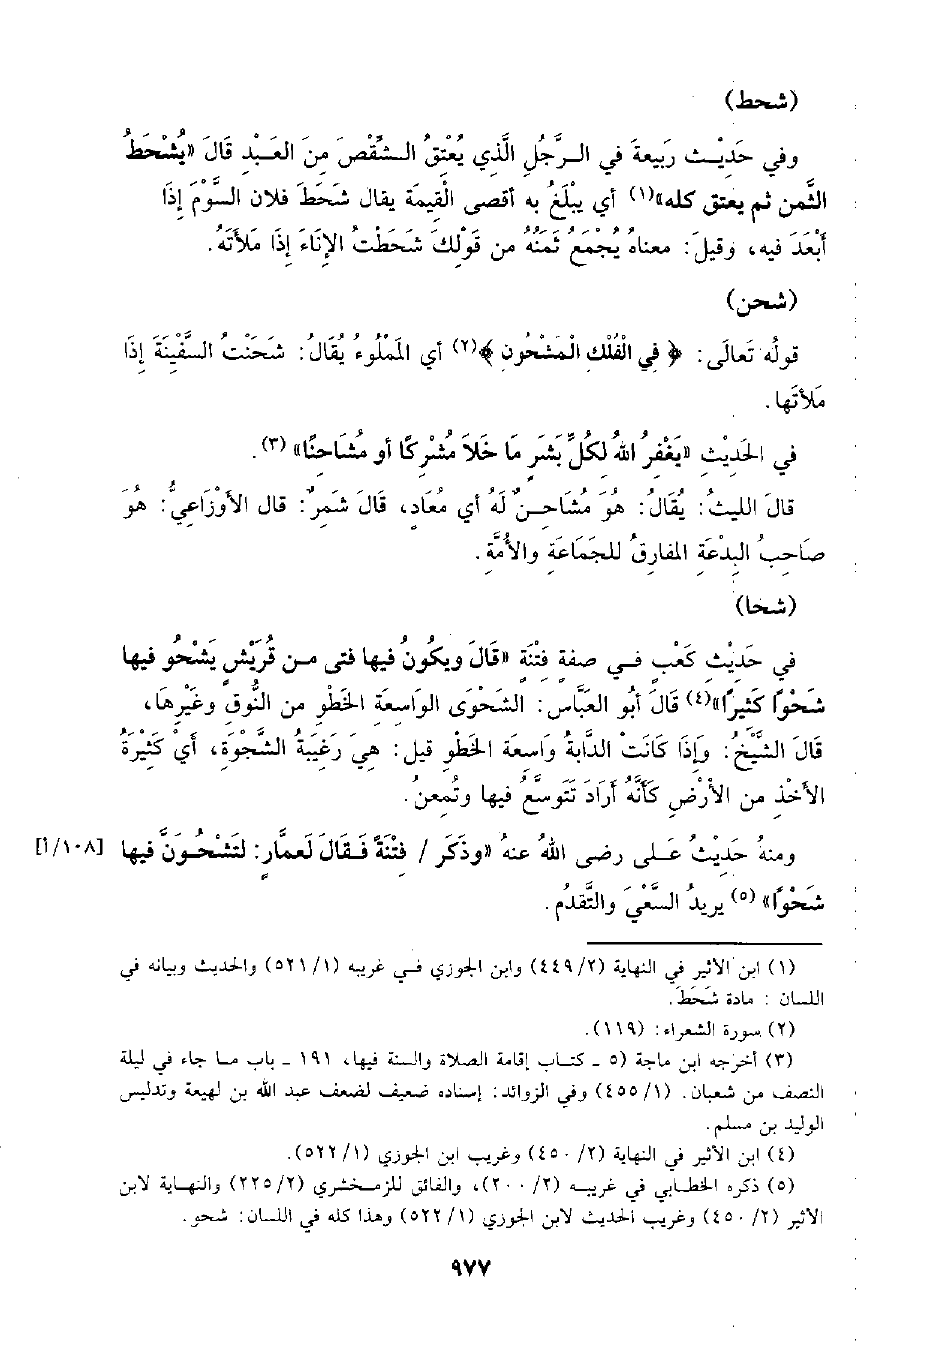 (شحط)
وفي حَدِيْث رَبيعةَ في الرَّجُلِ الَّذِي يُعْتِقُ الشِّقْصَ مِنَ العَبْدِ قَالَ «يُشْحَطُ
الثَّمن ثم يعتق كله»(١) أي يبْلَغُ به أقصى الْقِيمَة يقال شَحَطَ فلان السَّوْمَ إذَا
أبْعَدَ فيه، وقيلَ: معناهُ يُجْمَعُ ثَمَنُهُ من قَوْلِكَ شَحَطْتُ الإنَاءَ إذَا مَلأتَهُ.
(شحن)
قولُه تَعالَى: ﴿ في الْفُلْكِ الْمَشْحُون ﴾(٢) أي الْمَمْلُوءُ يُقَالُ: شَحَنْتُ السَّفْيِنَةَ إذَا
مَلأتَها.
في الحَدِيْثِ «يَغْفِرُ اللهُ لكُلِّ بَشَرٍ مَا خَلاَ مُشْرِكًا أو مُشَاحِنًا»(٣).
قالَ الليثُ: يُقَالُ: هُوَ مُشَاحِنٌ لَهُ أي مُعَادٍ، قَالَ شَمِرٌ: قال الأوْزَاعيُّ: هُوَ
صَاحِبُ البِدْعَةِ المفارِقُ للجَمَاعَةِ والأُمَّةِ.
(شحا)
في حَدِيْثِ كَعْبٍ فـي صفةِ فِتْنَةٍ «قَالَ ويكُونُ فيها فتى مـن قُرَيْشٍ يَشْحُو فيها
شَحْوًا كَثِيرًا»(٤) قَالَ أبُو العَبَّاس: الشَّحْوَى الوَاسِعَةِ الخَطْوِ من النُّوقِ وغَيْرِهَا،
قَالَ الشَّيْخُ: وَإذَا كَانَتْ الدَّابةُ وَاسِعَةَ الخَطْوِ قيل: هِيَ رَغِيبَةُ الشَّجْوَةِ، أيْ كَثِيْرَةُ
الأخْذِ من الأرْضِ كَأنَّهُ أرَادَ تَتَوسَّعُ فيها وتُمعِنُ.
ومنهُ حَدِيْثُ عَـلى رضى اللهُ عنهُ «وذَكَر / فِتْنَةً فَـقَالَ لَعمَّارٍ: لَتَشْحُوَنَّ فيها [١٠٨/أ]
شَحْوًا»(٥) يريدُ السَّعْيَ والتَّقدُم.
(١) ابن الأثير في النهاية (٤٤٩/٢) وابن الجوزي فـي غريبه (٥٢١/١) والحديث وبيانه في
اللسان : مادة شَحَطَ.
(٢) سورة الشعراء: (١١٩).
(٣) أخرجه ابن ماجة (٥ ـ كتـاب إقامة الصلاة والسنة فيها، ١٩١ ـ باب مـا جاء في ليلة
النصف من شعبان. (٤٥٥/١) وفي الزوائد: إسناده ضعيف لضعف عبد الله بن لهيعة وتدليس
الوليد بن مسلم.
(٤) ابن الأثير في النهاية (٤٥٠/٢) وغريب ابن الجوزي (٥٢٢/١).
(٥) ذكره الخطـابي في غريبـه (٢٠٠/٢)، والفائق للزمـخشري (٢٢٥/٢) والنهـاية لابن
الأثير (٤٥٠/٢) وغريب الحديث لابن الجوزي (٥٢٢/١) وهذا كله في اللسان: شحو.
٩٧٧